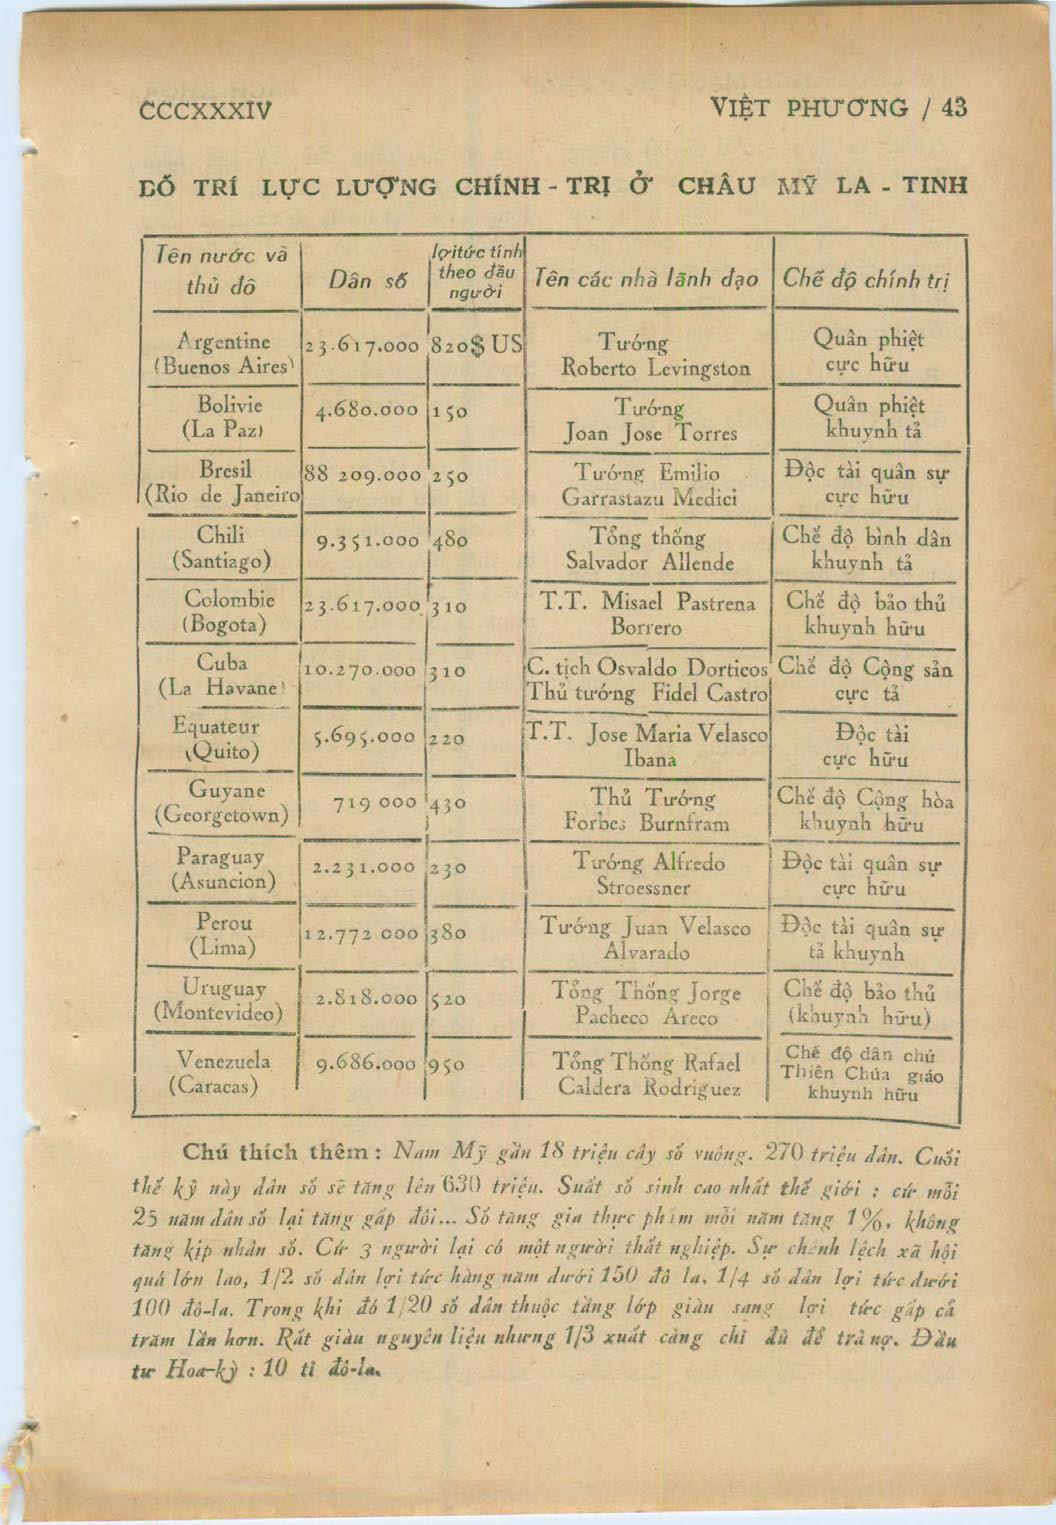 CCCXXXIV VIỆT PHƯƠNG / 43
BỐ TRÍ LỰC LƯỢNG CHÍNH - TRỊ Ở CHÂU MỸ LA - TINH
Tên nước và thủ đô Dân số lợi tức tính theo đầu người Tên các nhà lãnh đạo Chế độ chính trị
Argentine 23.617.000 820$ US Tướng Quân phiệt
(Buenos Aires) Roberto Levingston cực hữu
Bolivie 4.680.000 150 Tướng Quân phiệt
(La Paz) Joan Jose Torres khuynh tả
Bresil 88 209.000 250 Tướng Emilio Độc tài quân sự
(Rio de Janeiro Garrastazu Medici cực hữu
Chili 9.351.000 480 Tổng thống Chế độ bình dân
(Santiago) Salvador Allende khuynh tả
Colombie 23.617.000 310 T.T. Misael Pastrena Chế độ bảo thủ
(Bogota) Borrero khuynh hữu
Cuba 10.270.000 310 C. tịch Osvaldo Dorticos Chế độ Cộng sản
(La Havane) Thủ tướng Fidel Castro cực tả
Equateur 5.695.000 220 T.T. Jose Maria Velasco Độc tài
(Quito) Ibana cực hữu
Guyane 719 000 430 Thủ Tướng Chế độ Cộng hòa
(Georgetown) Forbes Burnfram khuynh hữu
Paraguay 2.231.000 230 Tướng Alfredo Độc tài quân sự
(Asuncion) Stroessner cực hữu
Perou 12.772 000 380 Tướng Juan Velasco Độc tài quân sự
(Lima) Alvarado tả khuynh
Uruguay 2.818.000 520 Tổng Thống Jorge Chế độ bảo thủ
(Montevideo) Pacheco Areco (khuynh hữu)
Venezuela 9.686.000 950 Tổng Thống Rafael Chế độ dân chủ
(Caracas) Caldera Rodriguez Thiên Chúa giáo
khuynh hữu
Chú thích thêm : Nam Mỹ gần 18 triệu cây số vuông. 270 triệu dân. Cuối
thế kỷ này dân số sẽ tăng lên 630 triệu. Suất số sinh cao nhất thế giới : cứ mỗi
25 năm dân số lại tăng gấp đôi... Số tăng gia thực phẩm mỗi năm tăng 1%, không
tăng kịp nhân số. Cứ 3 người lại có một người thất nghiệp. Sự chênh lệch xã hội
quá lớn lao, 1/2 số dân lợi tức hàng năm dưới 150 đô la, 1/4 số dân lợi tức dưới
100 đô-la. Trong khi đó 1/20 số dân thuộc tầng lớp giàu sang lợi tức gấp cả
trăm lần hơn. Rất giàu nguyên liệu nhưng 1/3 xuất cảng chỉ đủ để trả nợ. Đầu
tư Hoa-kỳ : 10 tỉ đô-la.